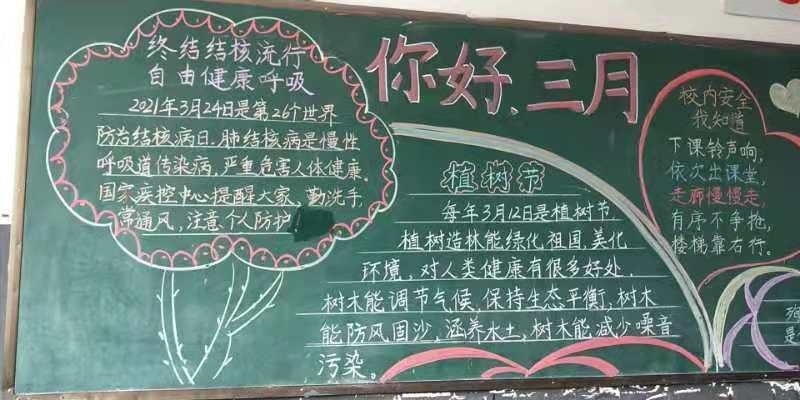 终结结核流行
自由健康呼吸
2021年3月24日是第26个世界
防治结核病日,肺结核病是慢性
呼吸道传染病,严重危害人体健康。
国家疾控中心提醒大家,勤洗手,
常通风,注意个人防护
你好、三月
植树节
每年3月12日是植树节
植树造林能绿化祖国,美化
环境,对人类健康有很多好处.
树木能调节气候.保持生态平衡,树木
能防风固沙,涵养水土,树木能减少噪音
污染。
校内安全
我知道
下课铃声响,
依次出课堂,
走廊慢慢走,
有序不争抢,
楼梯靠右行。
是